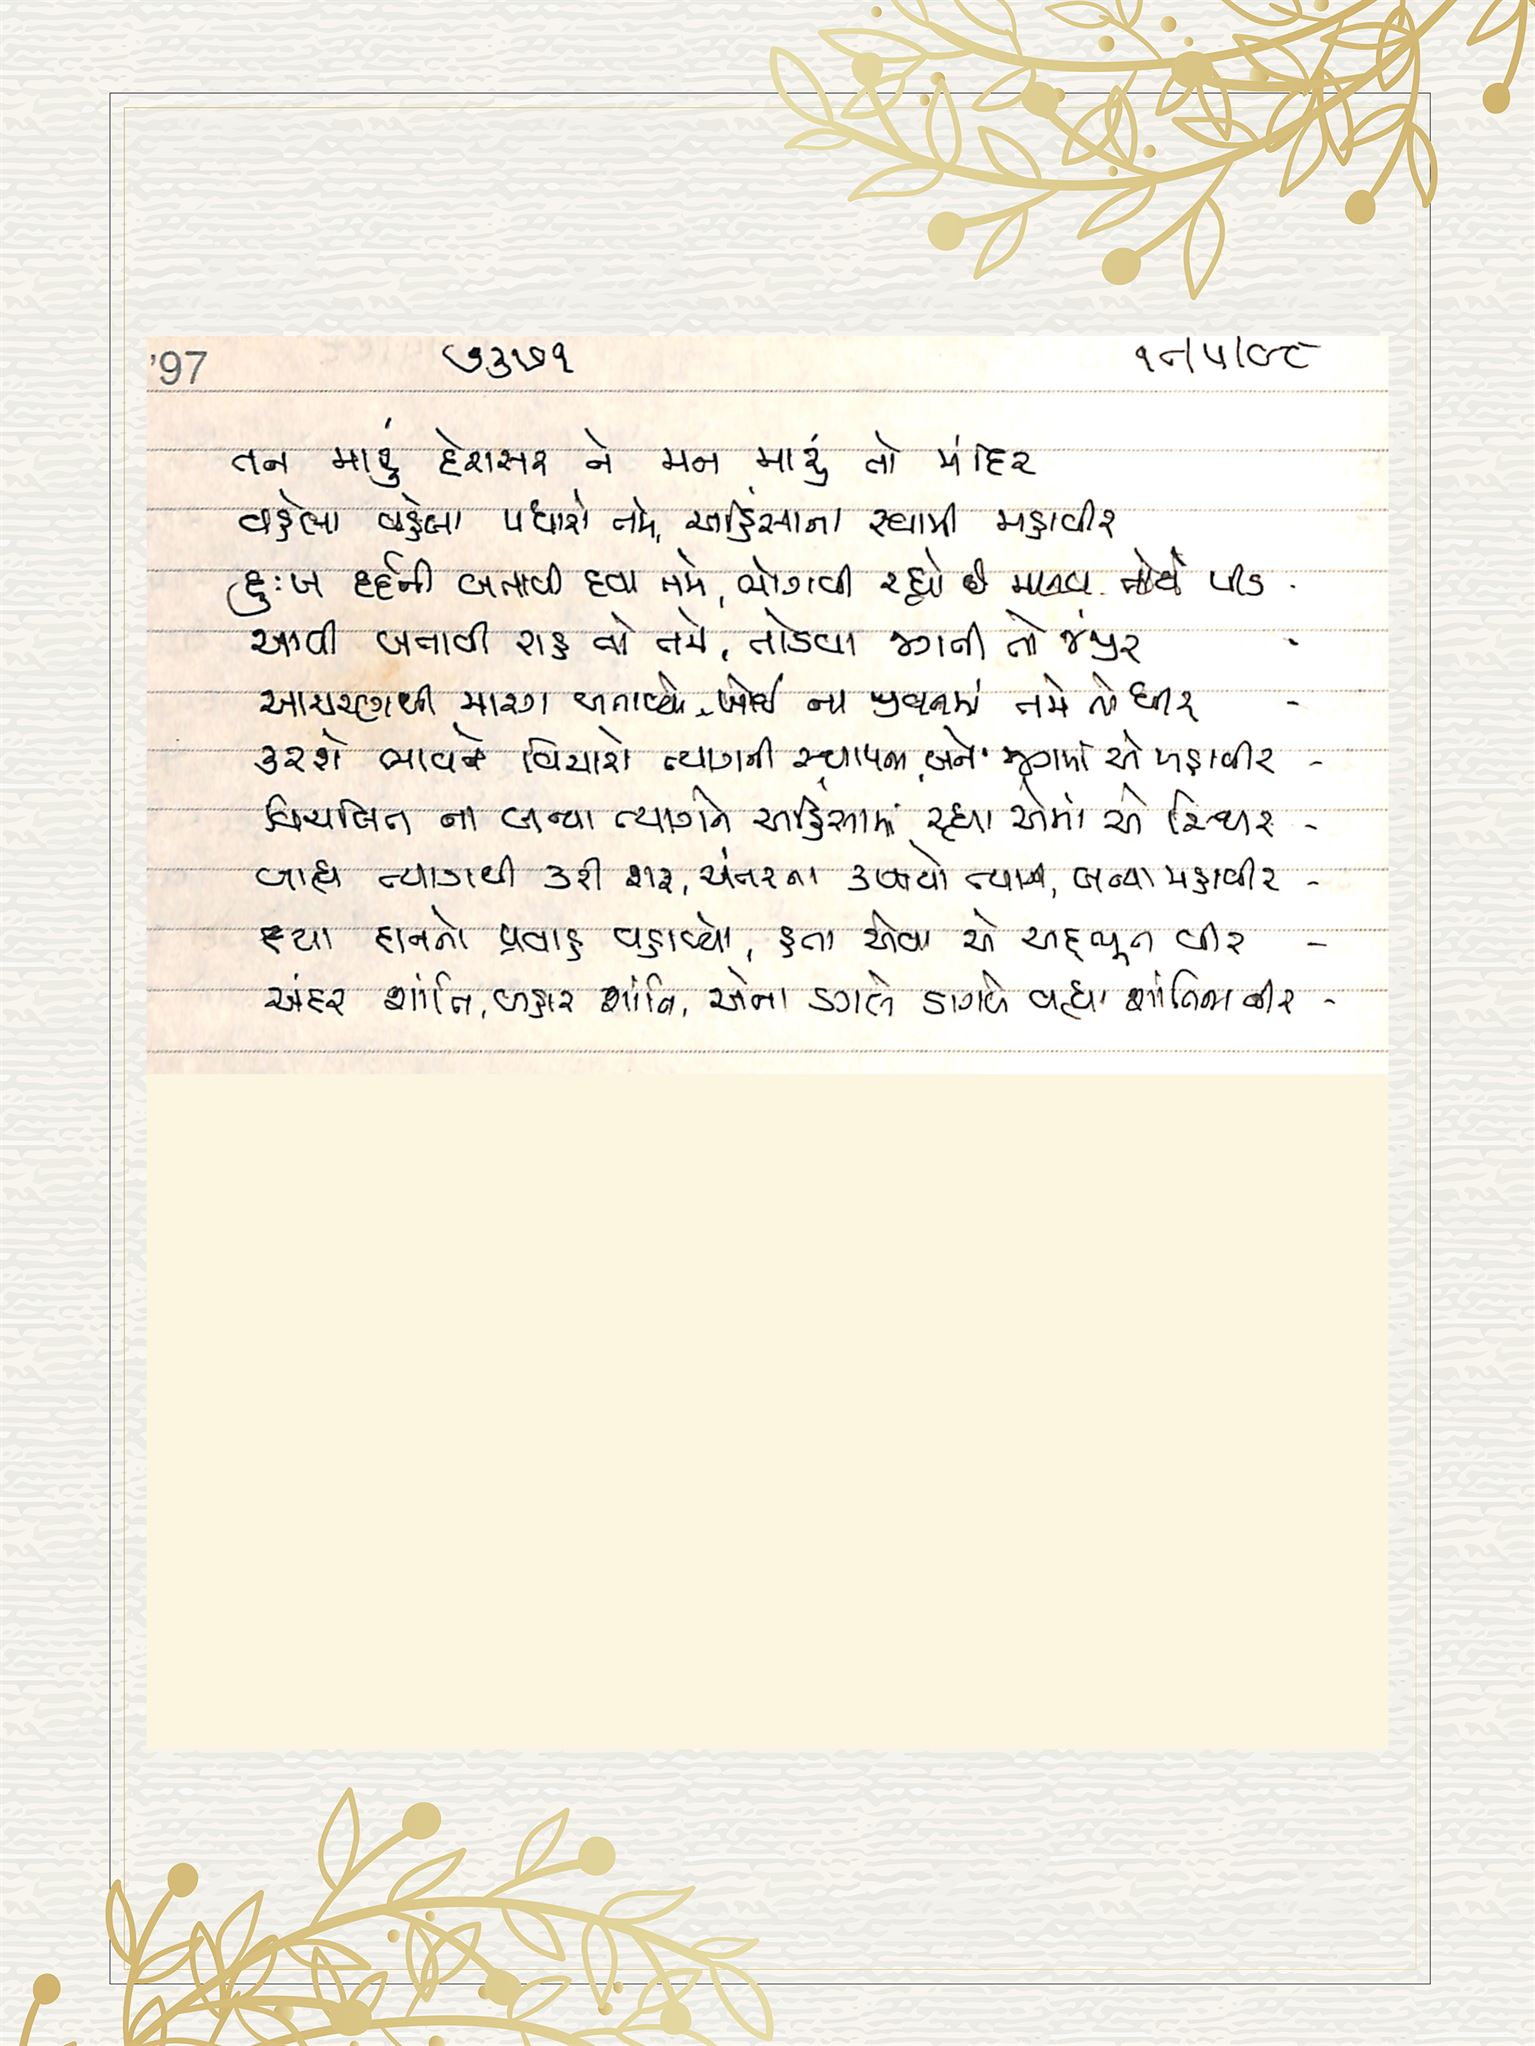 '97 ૭૩૭૧ ૧૮/૫/૯૮
તન મારું દેરાસર ને મન મારું તો મંદિર
વહેલા વહેલા પધારો તમે, અહિંસાના સ્વામી મહાવીર
દુઃખ દર્દની બતાવી દવા તમે, ભોગવી રહ્યો છે માનવ પીડ
આવી બતાવી રાહ તો તમે, તોડવા જગની તો જંજીર
આચરણથી મારગ બતાવ્યો, ખોઈ ના જીવનમાં તમે તો ધીર -
કરશે ભાવને વિચારો ત્યાગની સ્થાપના, બને જગમાં એ મહાવીર -
વિચલિત ના બન્યા ત્યાગને અહિંસામાં, રહ્યા એમાં એ સ્થિર -
બાહ્ય ત્યાગથી કરી શરૂ, અંતરના કષાયો ત્યાગ, બન્યા મહાવીર -
દયા દાનનો પ્રવાહ વહાવ્યો, હતા એવા એ અદ્ભૂત વીર -
અંદર શાંતિ, બહાર શાંતિ, એના ડગલે ડગલે વહ્યા શાંતિના નીર -